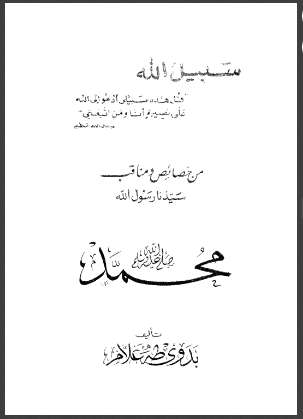 سبيل الله
"قل هذه سبيلى أدعو إلى الله
على بصيرة أنا ومن اتبعنى"
صدق الله العظيم
من خصائص ومناقب
سيدنا رسول الله
محمد صلى الله عليه وسلم
تأليف
بدوى طه علام